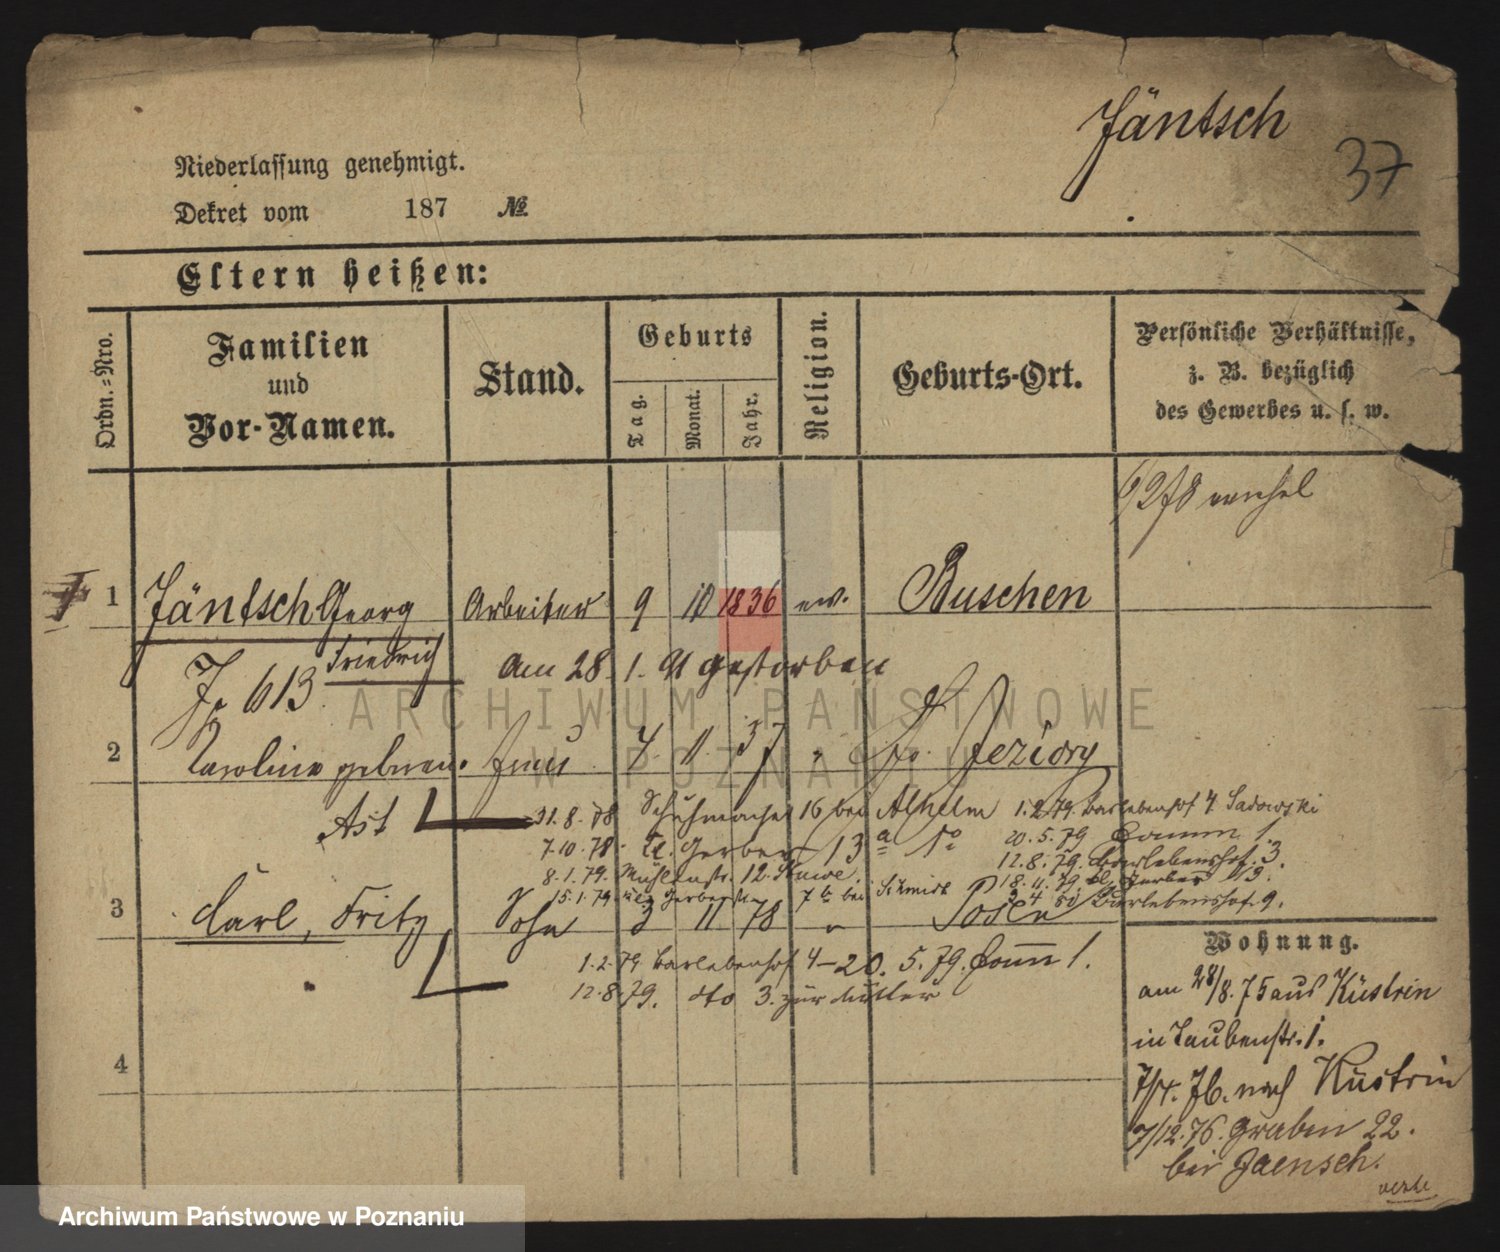 Jäntsch
37
Niederlassung genehmigt.
Dekret vom 187 №
Eltern heißen:
Ordn.=Nro.
Familien
und
Vor-Namen.
Stand.
Geburts
Tag.
Monat.
Jahr.
Religion.
Geburts-Ort.
Persönliche Verhältnisse,
z. B. bezüglich
des Gewerbes u. s. w.
1 Jäntsch Georg Arbeiter 9 10 1836 ev. Buschen
Friedrich
613
am 28. 1. 91 gestorben
2 Karoline geboren. 7. 1. 37 Jeziory
Ast
31.8.78 Schuhmacher 16 bei 1.2.79. Barlebenhof 4 Sadowski
7.10.78. Kl. Gerber 13 a 20.5.79 Comm 1
8.1.79. Mühlenstr. 12. 12.8.79. Barlebenshof. 3.
15.1.79 Gerberstr 7 b bei Schmidt 18.11.79 Kl. Gerber 13.
3 Carl, Fritz Sohn 3 11 78 " Posen
Barlebenshof 9.
1.2.79 Barlebenhof 4 – 20. 5. 79. Comm 1.
12.8.79. dto 3. zur Mutter
4
Wohnung.
am 28/8. 75 aus Küstrin
in Taubenstr. 1.
7/4. 76. nach Küstrin
7/12.76. Graben 22.
bei Jaensch.
ARCHIWUM PAŃSTWOWE
W POZNANIU
Archiwum Państwowe w Poznaniu